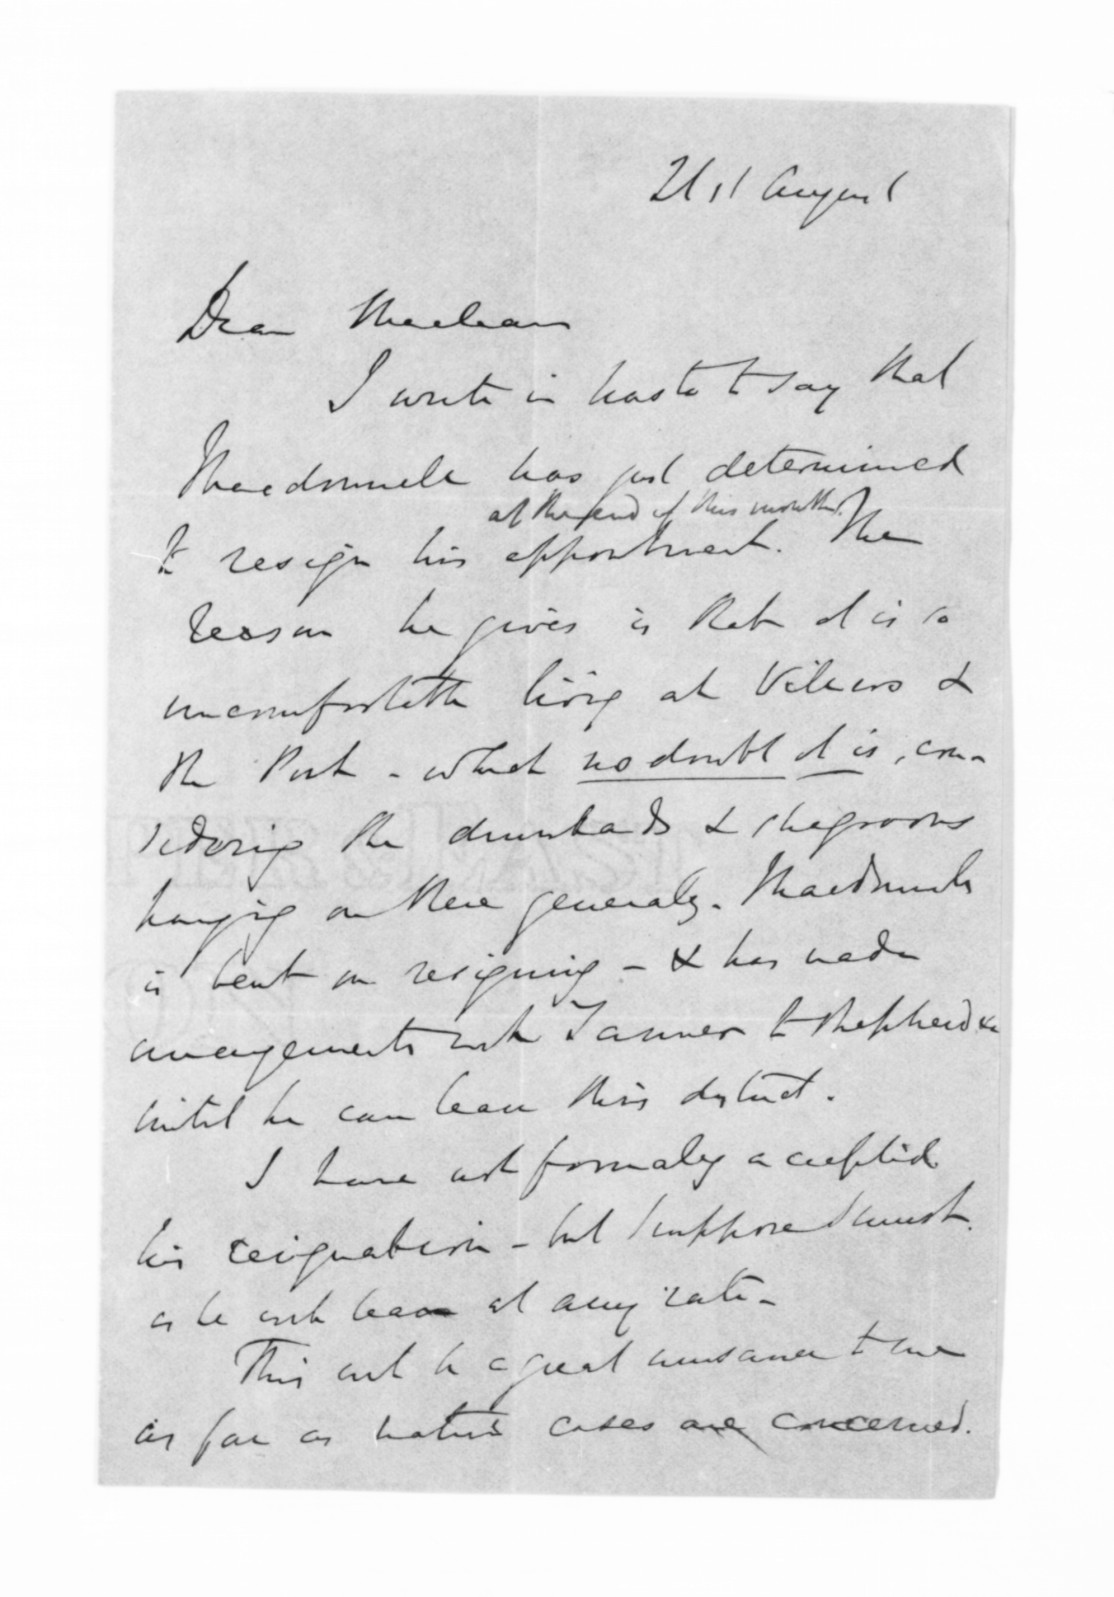 21st August
Dear Maclean
I write in haste to say that
Macdonnell has just determined
at the end of this month.
to resign his appointment. The
reason he gives is that it is so
uncomfortable living at Villers &
the Port - which no doubt it is, con-
sidering the drunkards &
hanging on there generally. Macdonnell
is bent on resigning - & has made
arrangements with Tanner to Shepherd &c
until he can leave this district.
I have not formally accepted
his resignation - but I suppose I must.
as he will leave at any rate -
This will be a great nuisance to me
as far as native cases are concerned.